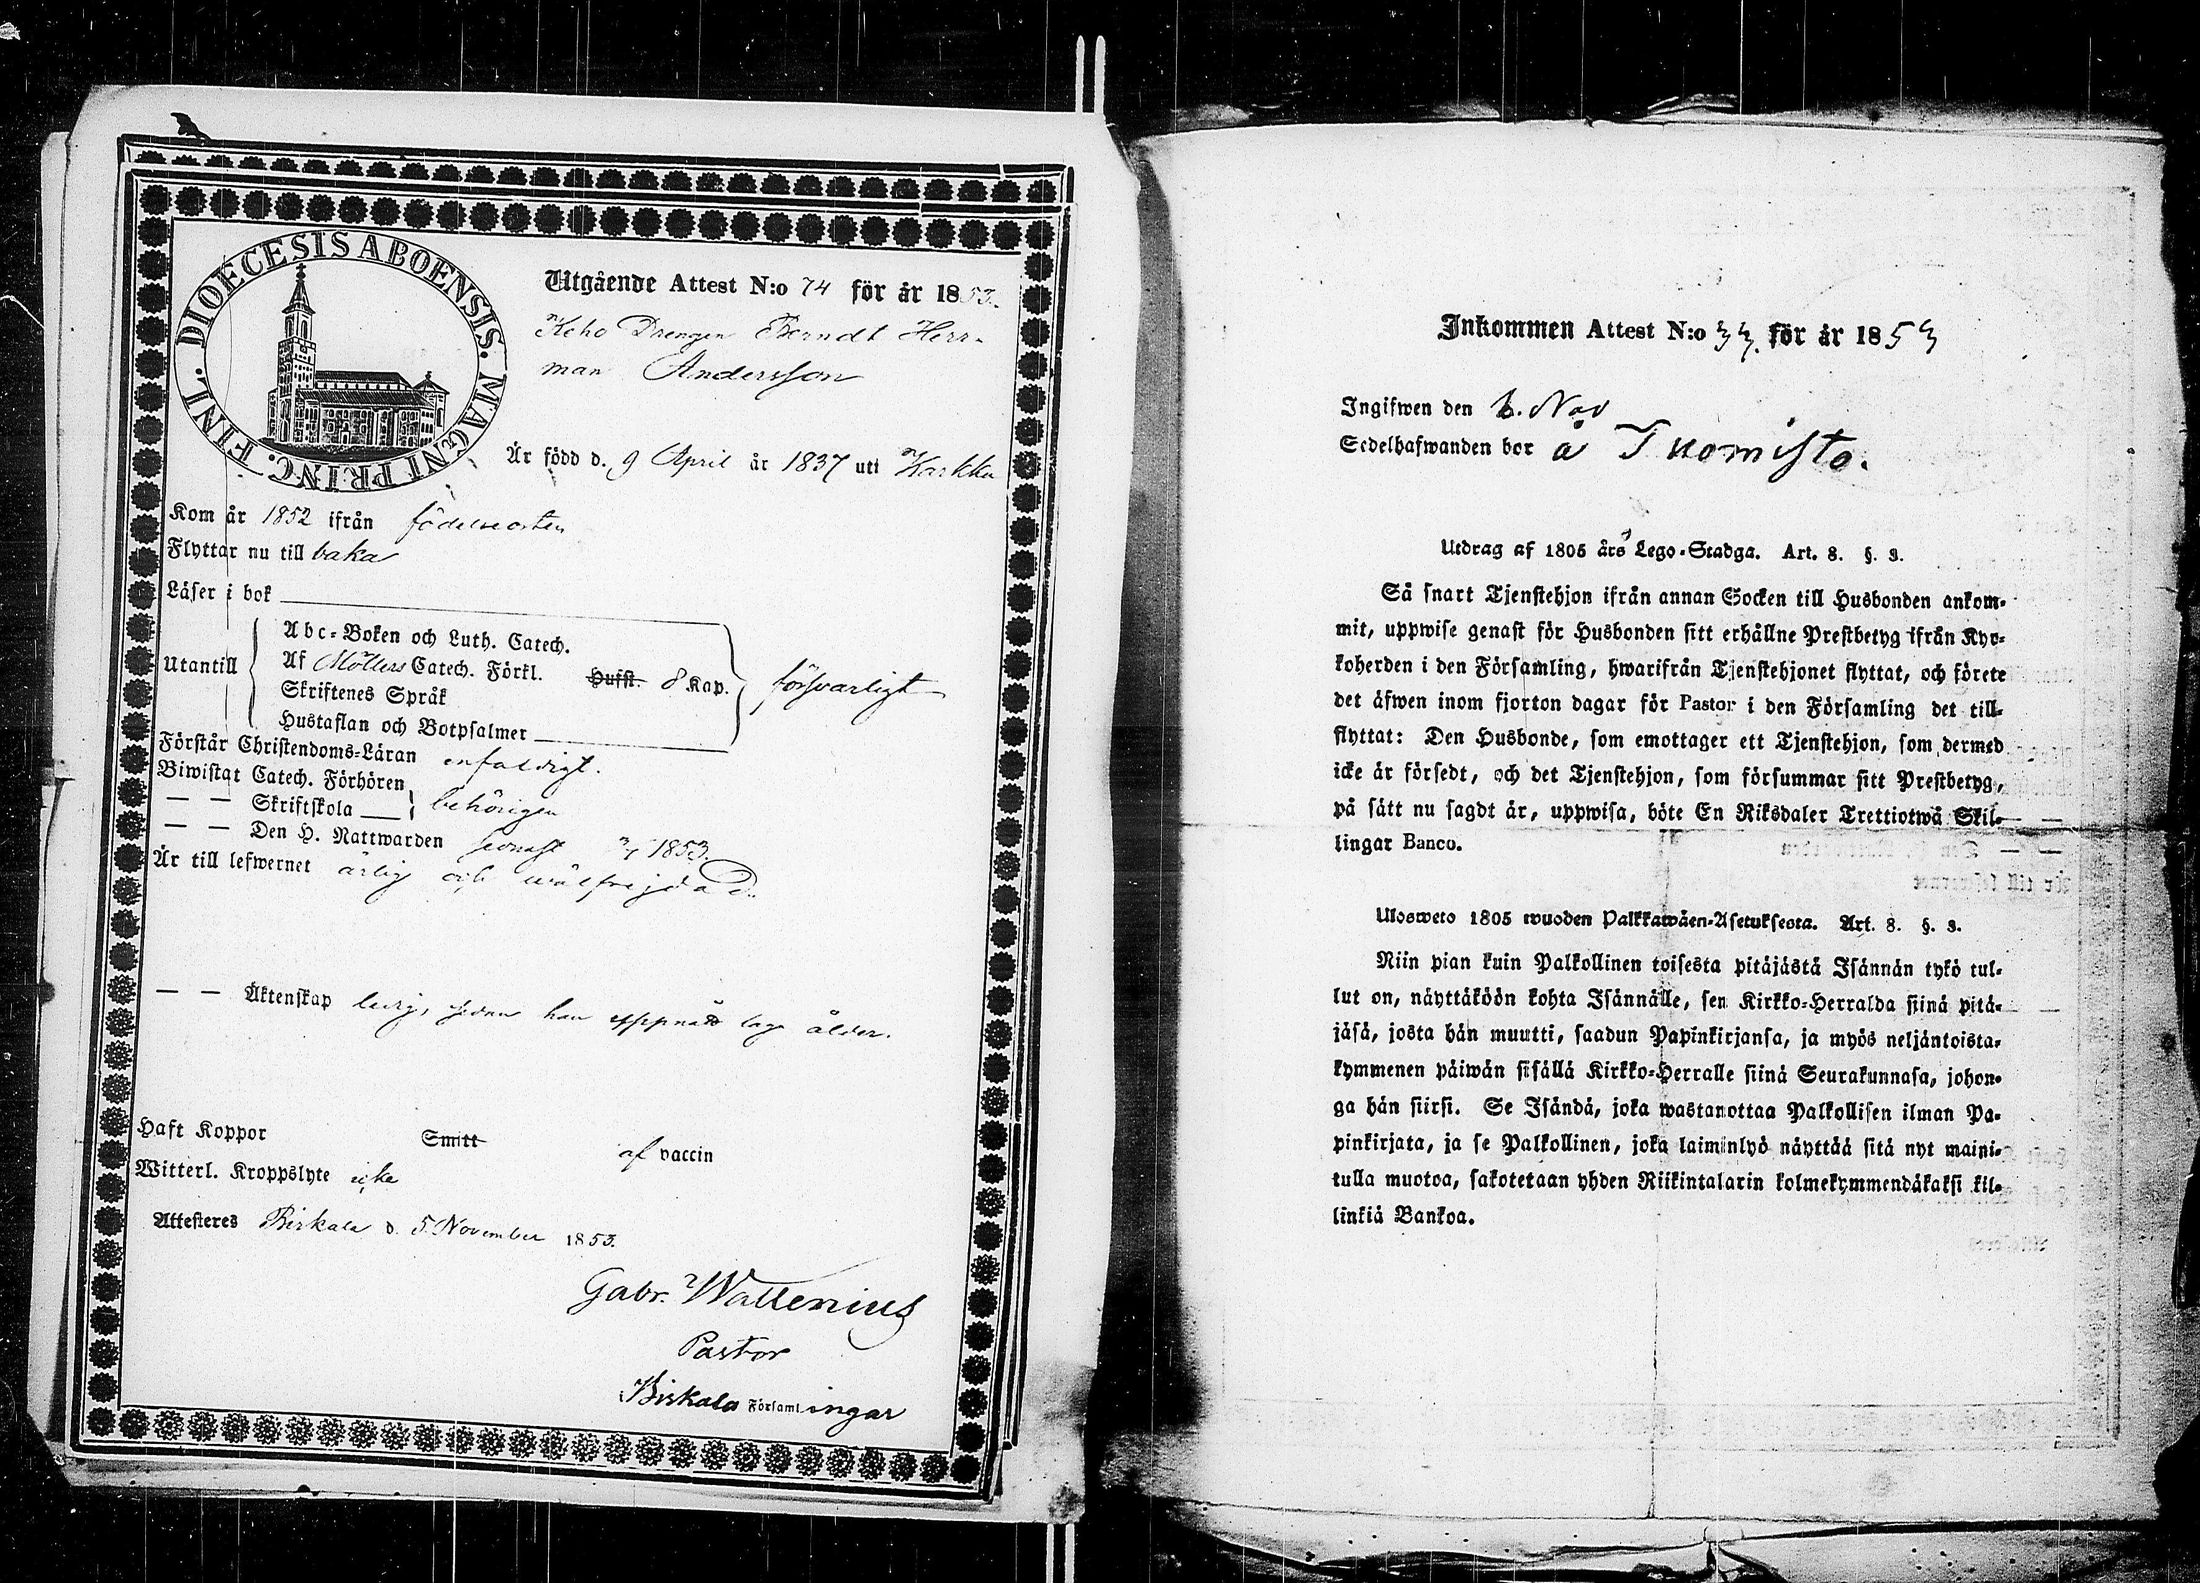 DIOECESIS ABOENSIS. MAGNI PRINC. FINL.
Utgående Attest N:o 74 för år 1853.
Keho Drengen Berndt Herr-
man Andersson
Är född d. 9 April år 1837 uti Karkku
Kom år 1852 ifrån födelseorten
Flyttar nu till baka
Läser i bok
Utantill
Abc-Boken och Luth. Catech.
Af Möllers Catech. Förkl. Hufst. 8 Kap.
Skriftenes Språk
Hustaflan och Botpsalmer
försvarligt
Förstår Christendoms-Läran enfaldigt.
Biwistat Catech. Förhören
— — Skriftskola
behörigen
— — Den H. Nattwarden senast 1853.
Är till lefwernet ärlig och wälfrejdad.
— — Äktenskap ledig, sedan han uppnått lag ålder.
Haft Koppor Smitt af vaccin
Witterl. Kroppslyte icke
Attesteres Birkala d. 5 November 1853.
Gabr. Wallenius
Pastor
Birkala Församl.ingar
Inkommen Attest N:o 33. för år 1853
Ingifwen den Nov
Sedelhafwanden bor å Tuomisto.
Utdrag af 1805 års Lego-Stadga. Art. 8. §. 3.
Så snart Tjenstehjon ifrån annan Socken till Husbonden ankom-
mit, uppwise genast för Husbonden sitt erhållne Prestbetyg ifrån Kyr-
koherden i den Församling, hwarifrån Tjenstehjonet flyttat, och förete
det äfwen inom fjorton dagar för Pastor i den Församling det till-
flyttat: Den Husbonde, som emottager ett Tjenstehjon, som dermed
icke är försedt, och det Tjenstehjon, som försummar sitt Prestbetyg,
på sätt nu sagdt är, uppwisa, böte En Riksdaler Trettiotwå Skil-
lingar Banco.
Ulosweto 1805 wuoden Palkkawäen-Asetuksesta. Art. 8. §. 3.
Niin pian kuin Palkollinen toisesta pitäjästä Isännän tykö tul-
lut on, näyttäköön kohta Isännälle, sen Kirkko-Herralda siinä pitä-
jäsä, josta hän muutti, saadun Papinkirjansa, ja myös neljäntoista-
kymmenen päiwän sisällä Kirkko-Herralle siinä Seurakunnasa, johon-
ga hän siirsi. Se Isändä, joka wastanottaa Palkollisen ilman Pa-
pinkirjata, ja se Palkollinen, joka laiminlyö näyttää sitä nyt maini-
tulla muotoa, sakotetaan yhden Riikintalarin kolmekymmendäkaksi kil-
linkiä Bankoa.